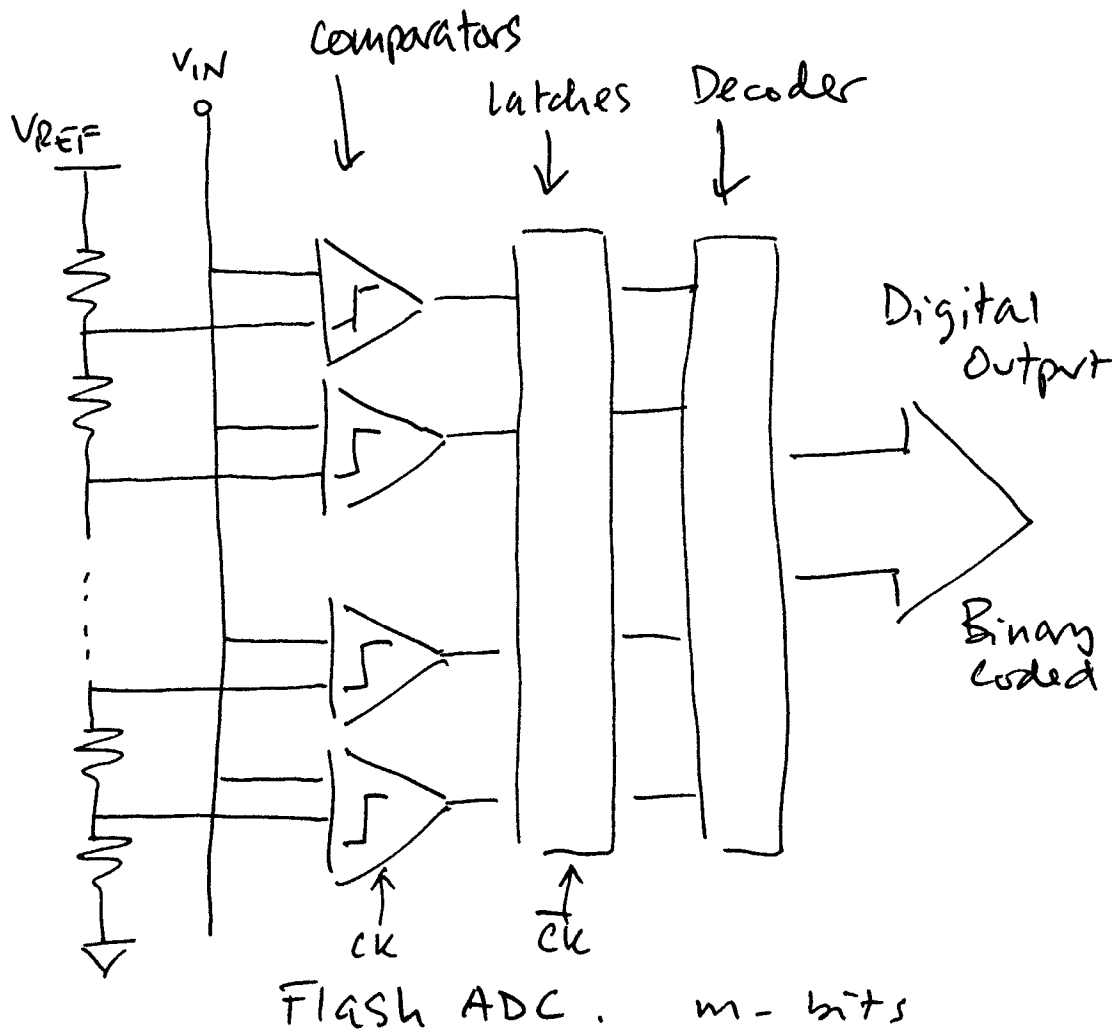 Comparators
VIN
Latches
Decoder
VREF
Digital
Output
Binary
Coded
CK
C̅K̅
Flash ADC. m-bits